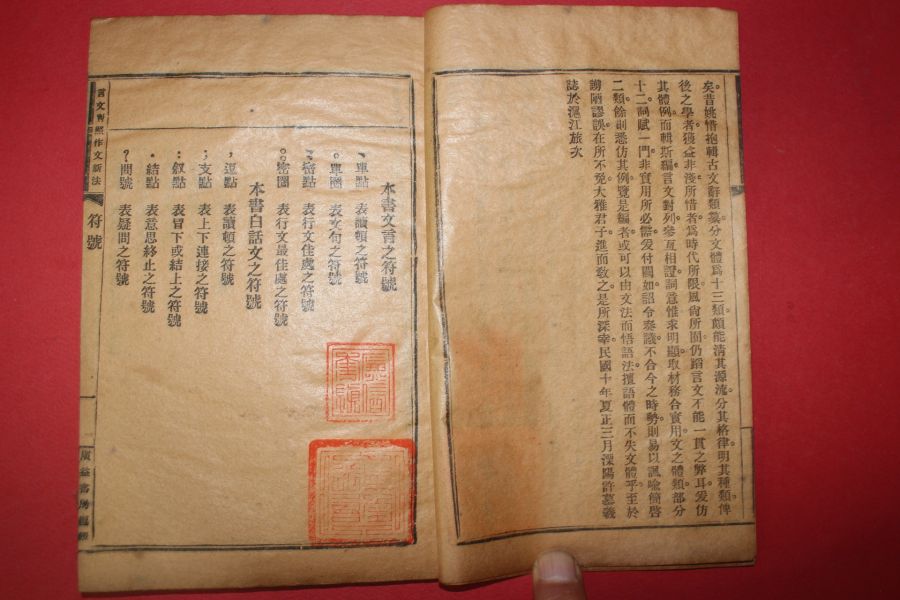 矣。昔姚惜抱輯古文辭類纂。分文體爲十三類。頗能淸其源流。分其格律。明其種類。俾
後之學者。獲益非淺。所惜者。爲時代所限。風尙所囿。仍蹈言文不能一貫之弊耳。爰仿
其體例。而輯斯編。言文對列。參互相證。詞意惟求明顯。取材務合實用。文之體類部分
十二。詞賦一門。非實用所必需。爰付闕如。詔令奏議。不合今之時勢。則易以諷喻簡啓
二類。餘則悉仿其例。覽是編者。或可以由文法而悟語法。擅語體而不失文體乎。至於
謭陋謬誤。在所不免。大雅君子。進而敎之。是所深幸。民國十年夏正三月溧陽許慕羲
誌於滬江旅次
本書文言之符號
、單點　表讀頓之符號
。單圈　表文句之符號
、、密點　表行文佳處之符號
。。密圈　表行文最佳處之符號
本書白話文之符號
，逗點　表讀頓之符號
；支點　表上下連接之符號
：敍點　表冒下或結上之符號
．結點　表意思終止之符號
？問號　表疑問之符號
言文對照作文新法
符號
一
廣益書房